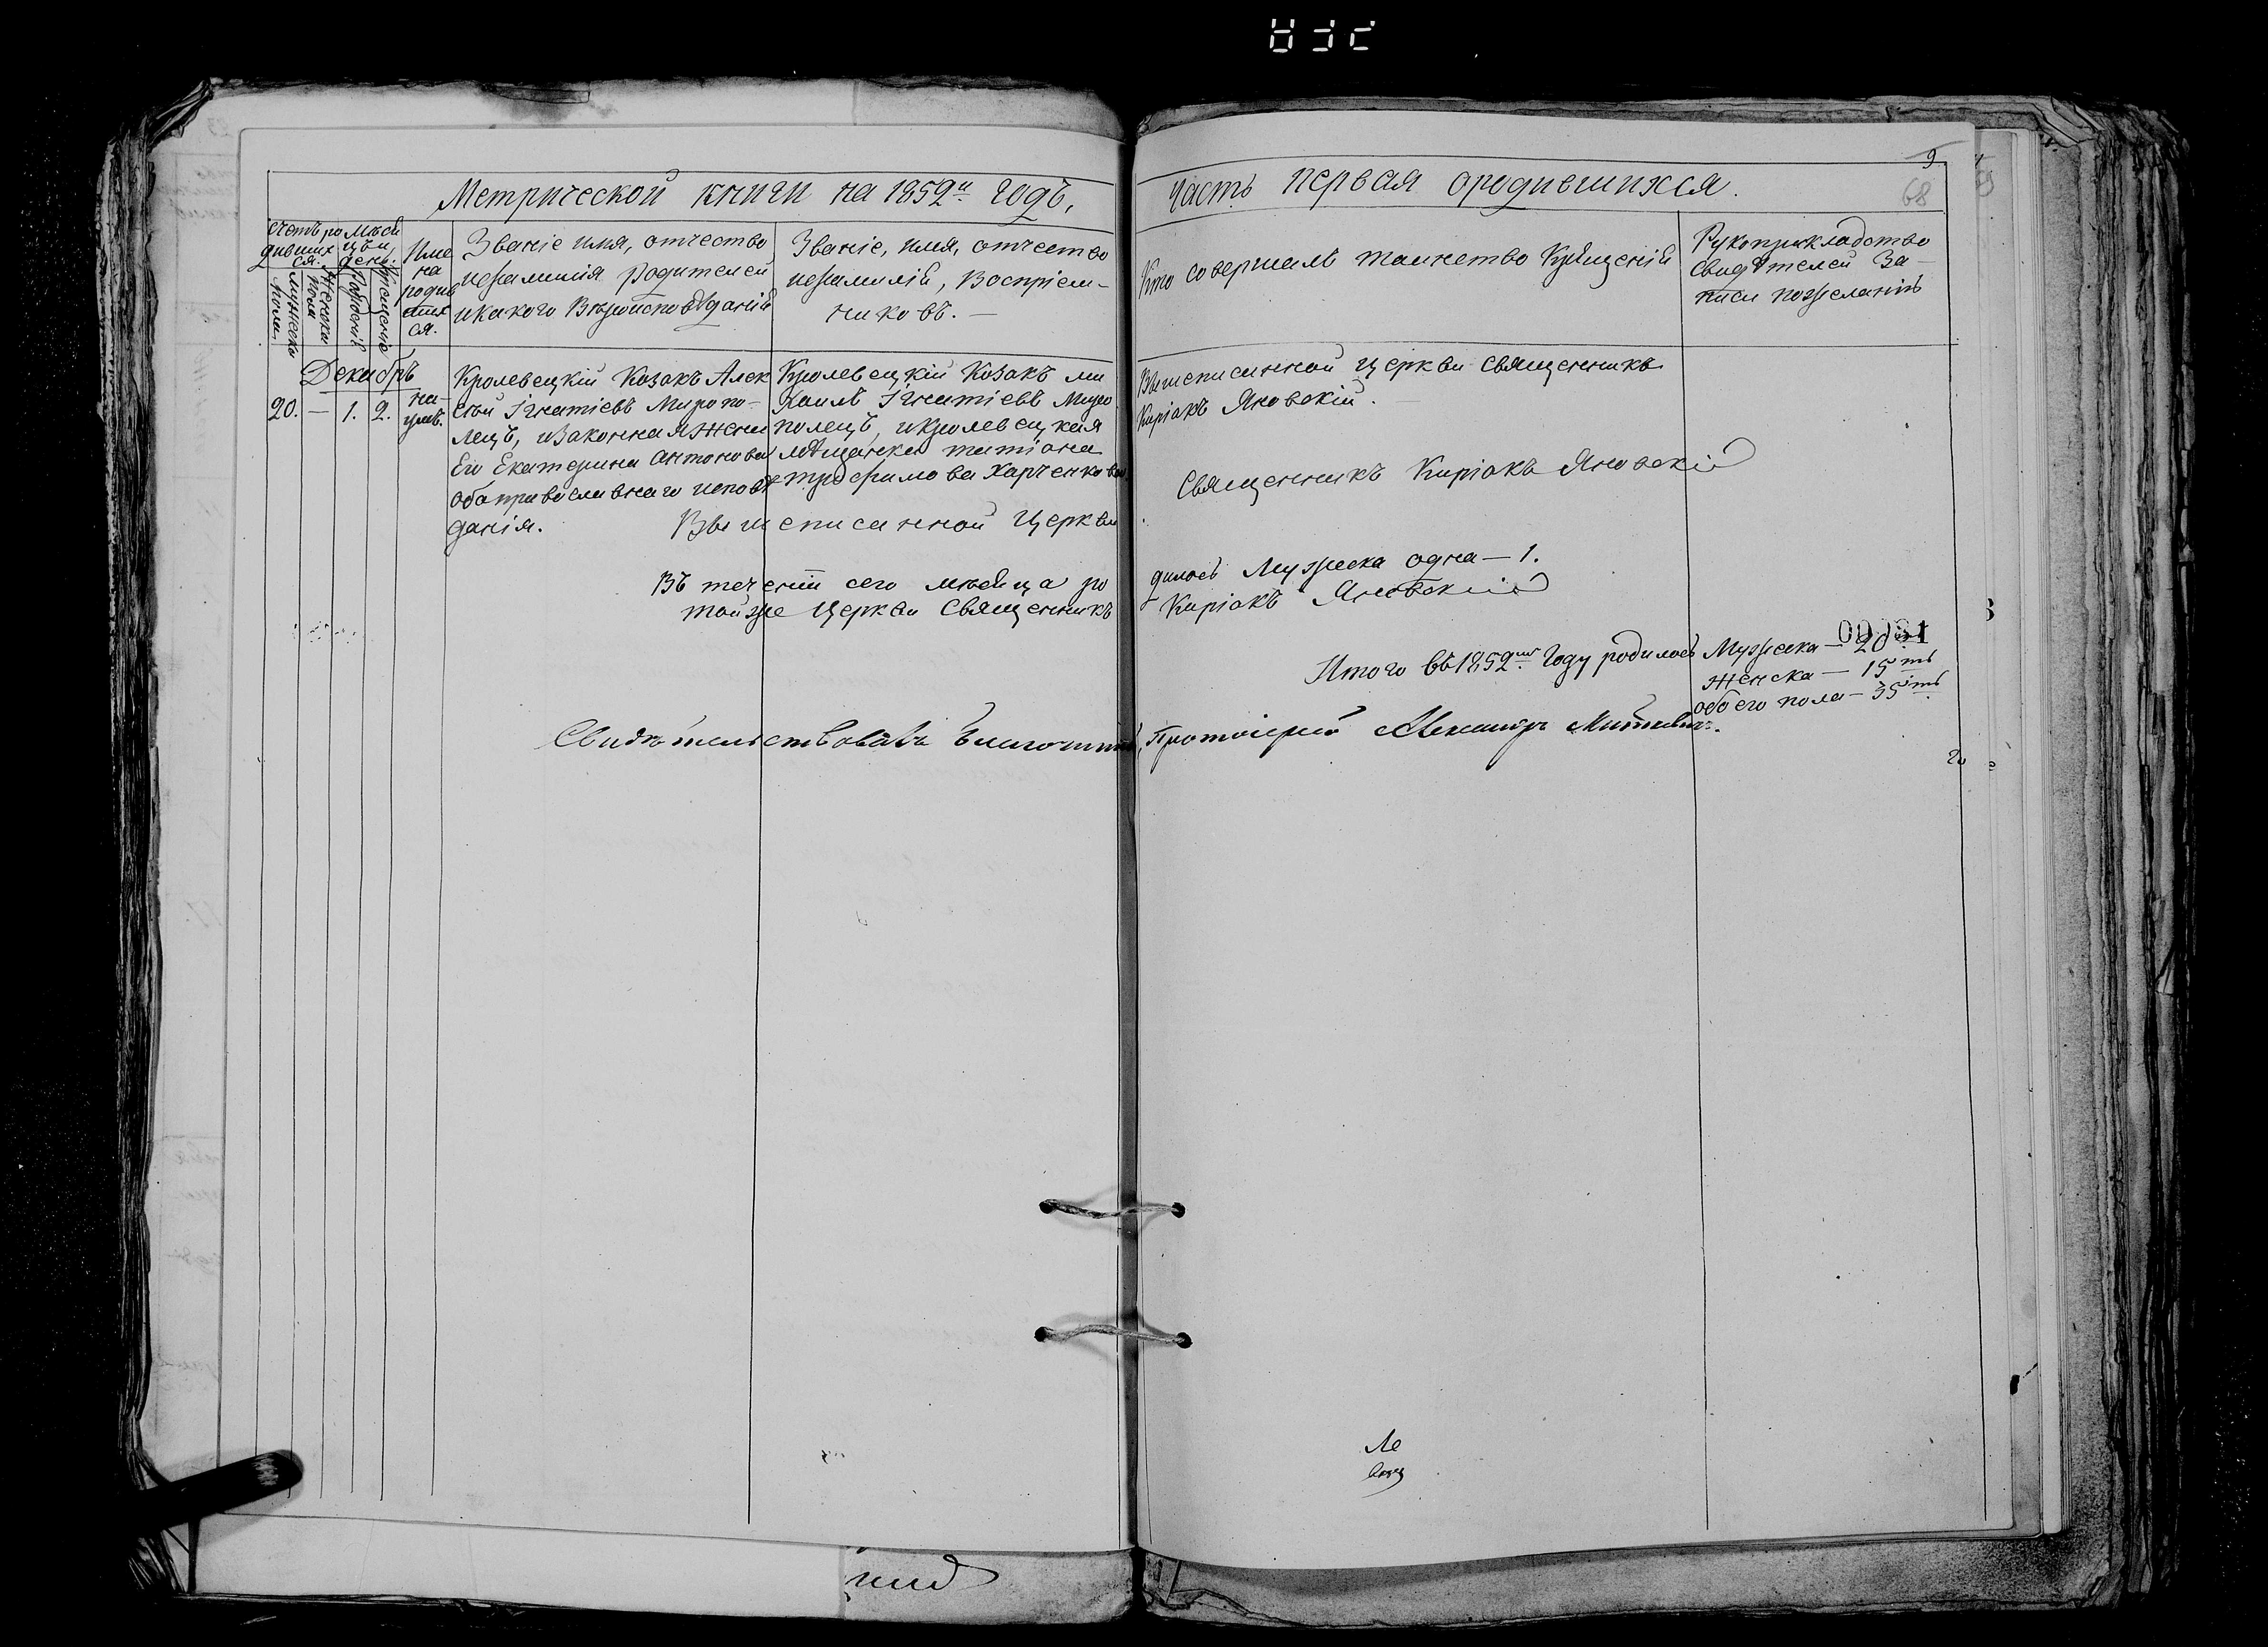 Метрической книги на 1852й годъ,
Часть первая ородившихся.
9.
68
Счетъ ро
дивших
ся.
Мѣся
цъ и
день.
Мужеска
пола.
Женска
пола
Рожденія
Крещенія
Име
на
родив
ших
ся.
Званіе имя, отчество
ифамилія Родителей
икакого Вѣроисповѣданія
Званіе, имя, отчество
ифамилія, Воспріем-
никовъ. —
Кто совершалъ таинство Крѣщенія
Рукоприкладство
Свидѣтелей За-
писи пожеланію
Декабрь
20. — 1. 2. На-
умъ.
Кролевецкій Козакъ Алек
сѣй Игнатіевъ Миропо-
лецъ, изаконная Жена
Его Екатерина Антонова
оба православнаго исповѣ
данія.
Кролевецкій Козакъ ми
хаилъ Игнатіевъ Миро
полецъ, икролевецкая
мѣщанка татіана
трофимова Харченкова.
Вышеписанной Церкви Священникъ
Киріакъ Яновскій. —
Вышеписанной Церкви
Священникъ Киріакъ Яновскій
Въ теченіи сего мѣсяца ро
дилось Мужеска одна — 1.
тойже Церкви Священникъ
Киріакъ Яновскій
Итого въ 1852мъ Году родилось Мужеска — 20ть
Женска — 15ть
обоего пола — 35ть
Свидѣтельствовалъ Благочинный, Протоіерей Александръ Миткевичь.